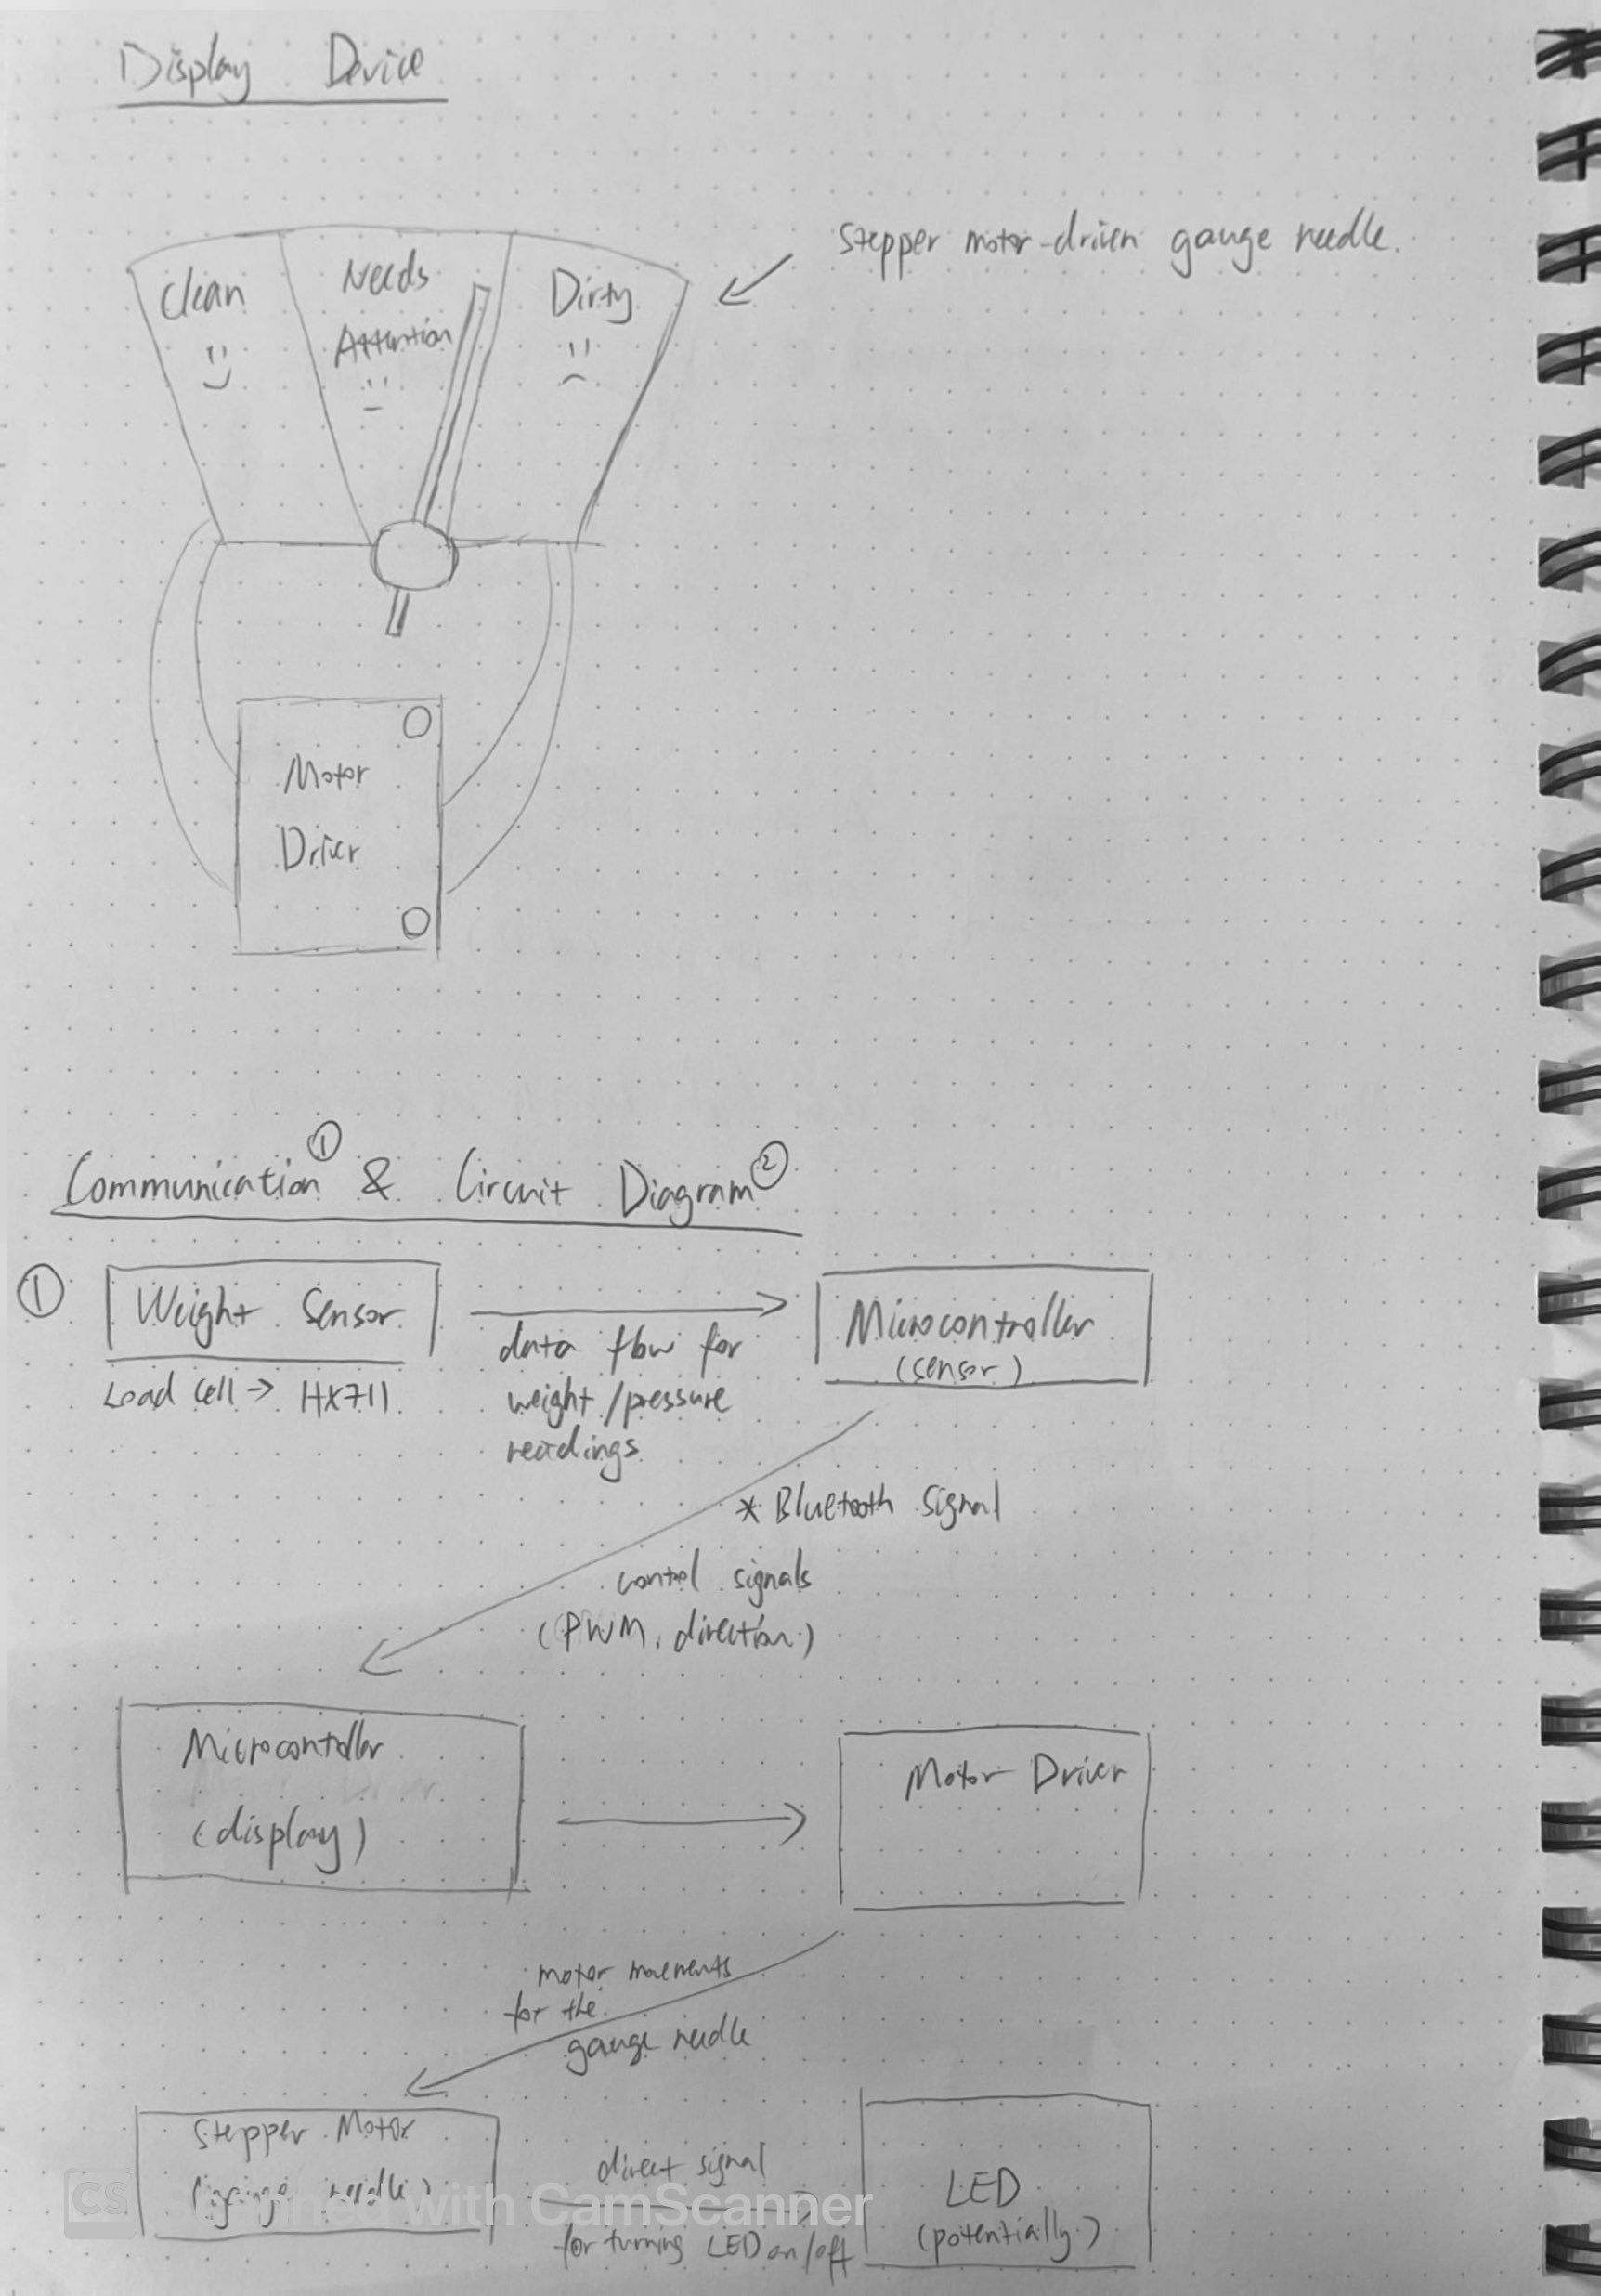 Display Device
stepper motor-driven gauge needle.
Clean
Needs
Attention
Dirty
Motor
Driver
Communication ① & Circuit Diagram ②
①
Weight Sensor
Load cell → HX711
data flow for
weight/pressure
readings
Microcontroller
(sensor)
* Bluetooth signal
control signals
(PWM, direction)
Microcontroller
(display)
Motor Driver
motor movements
for the
gauge needle
Stepper Motor
(gauge needle)
direct signal
for turning LED on/off
LED
(potentially)
CS
with CamScanner